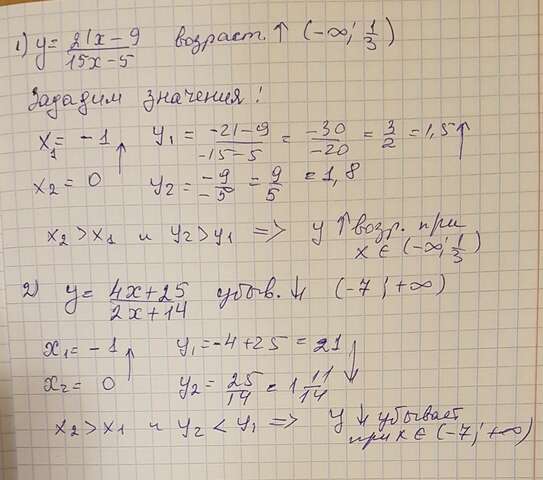 1) y = (21x-9)/(15x-5) возраст. ↑ (-∞; 1/3)
Зададим значения!
x₁ = -1 ↑ y₁ = (-21-9)/(-15-5) = (-30)/(-20) = 3/2 = 1,5 ↑
x₂ = 0 y₂ = (-9)/(-5) = 9/5 = 1,8
x₂ > x₁ и y₂ > y₁ => y ↑ возр. при
x ∈ (-∞; 1/3)
2) y = (4x+25)/(2x+14) убыв. ↓ (-7; +∞)
x₁ = -1 ↑ y₁ = -4+25 = 21 ↓
x₂ = 0 y₂ = 25/14 = 1 11/14
x₂ > x₁ и y₂ < y₁ => y ↓ убывает
при x ∈ (-7; +∞)